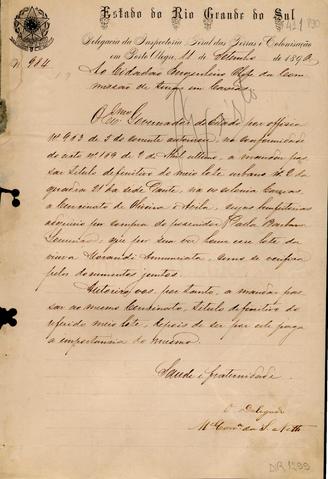 Estado do Rio Grande do Sul
Delegacia da Inspectoria Geral das Terras e Colonisação
em Porto Alegre, 11 de Setembro de 1890
N. 914
Ao Cidadão Engenheiro Chefe da Com
missão de terras em Caxias
O Governador do Estado por officio
Nº 903 de 5 do corrente autorisou, na conformidade
do aviso nº 109 de 2 de Abril ultimo, a mandar pas
sar titulo definitivo do meio lote urbano nº 2 da
quadra 21 na sede Dante, na ex colonia Caxias,
a Cincinato de Oliveira Avila, cujas bemfeitorias
adquirio por compra do possuidor Paulo Barbosa
que por sua vez houve esse lote da
viuva Morandi Annunciata, como se verifica
pelos documentos juntos.
Autoriso, vos, por tanto, a mandar pas
sar ao mesmo Cincinato, titulo definitivo do
referido meio lote, depois de ser por elle paga
a importancia do mesmo.
Saude e fraternidade.
O Delegado
Netto
DIR 1299